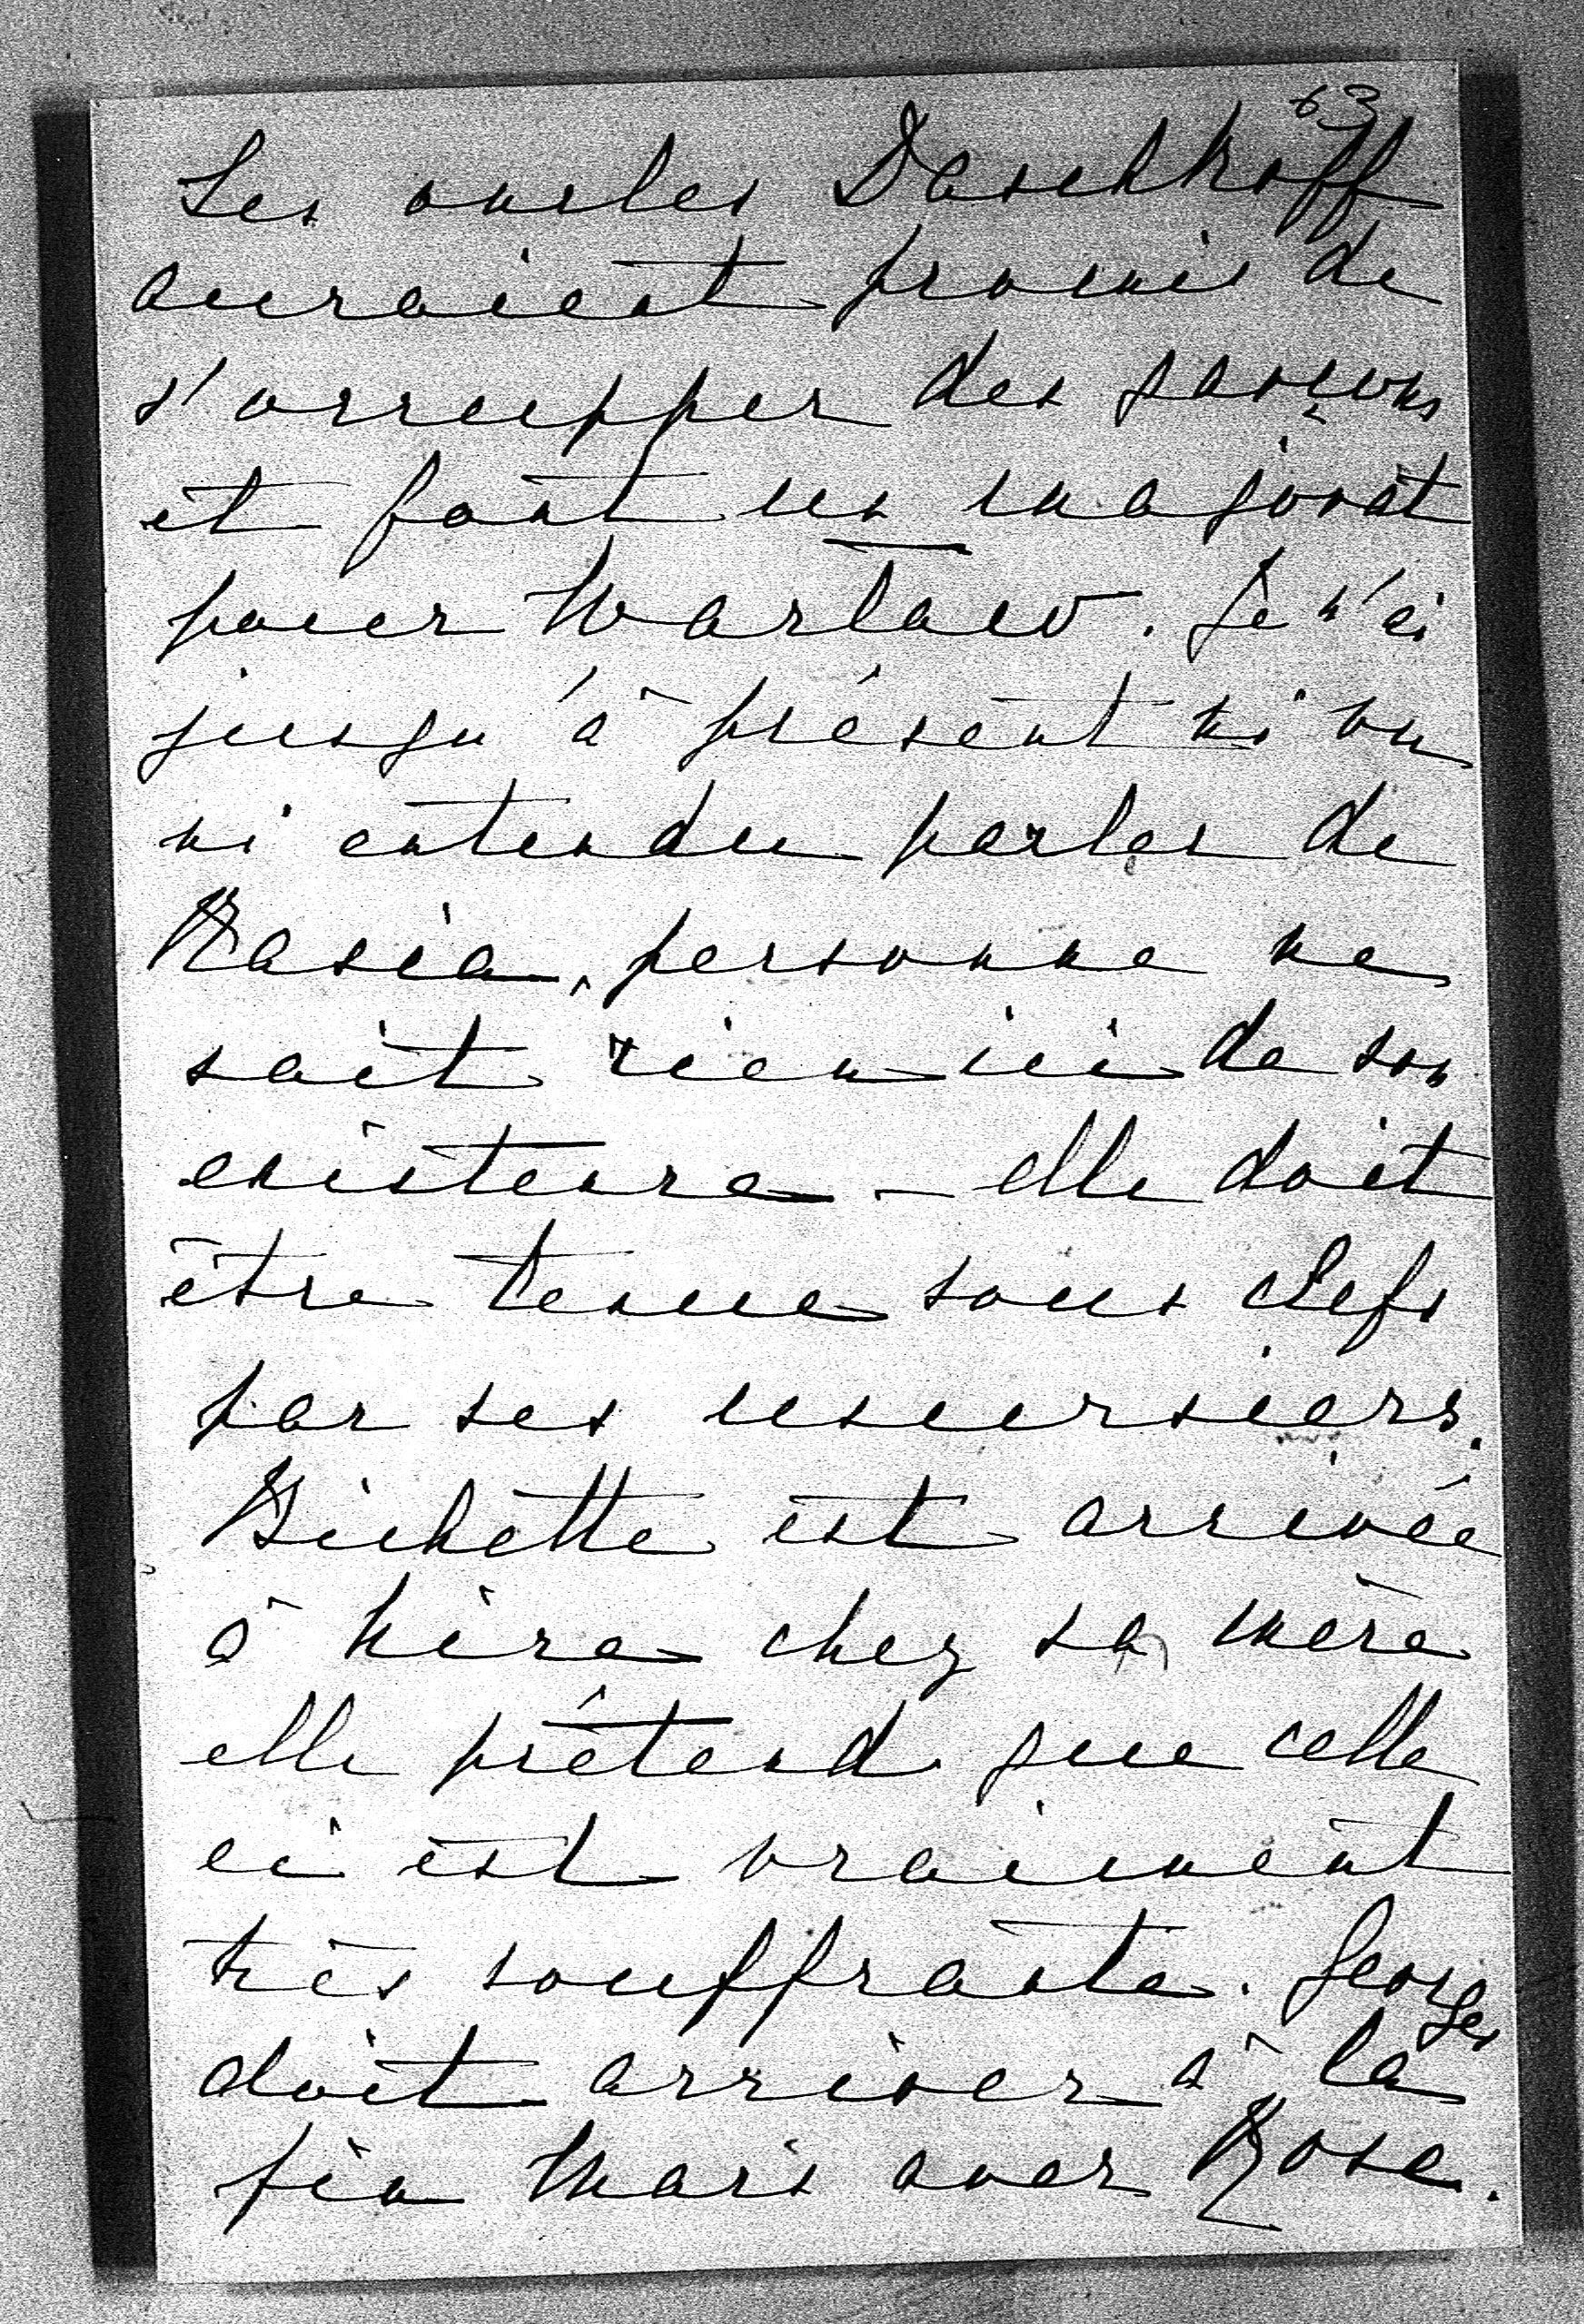 63
Les oncles Daschkoff
auraient promis de
s'occupper des garçons
et font un majorat
pour Warlaw. Je n'ai
jusqu'à présent ni vu
ni entendu parler de
Basia, personne ne
sait rien ici de son
existence – elle doit
être tenue sous clefs
par ses usuriers.
Bichette est arrivée
à hière chez sa mère
elle prétend que celle
ci est vraiment
très souffrante. Georges
doit arriver à la
fin Mars avec Rose.